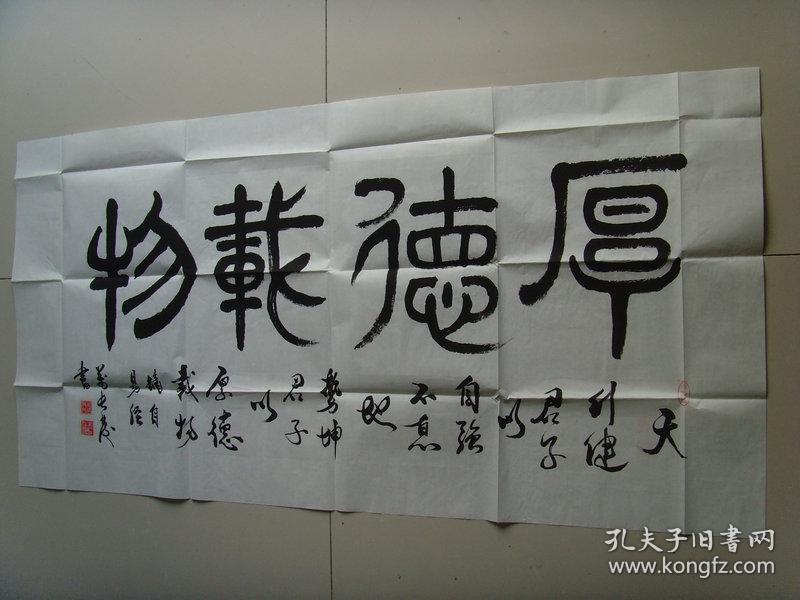 厚德載物
天
行健
君子
以
自強
不息
地
勢坤
君子
以
厚德
載物
摘自
易経
書
孔夫子旧书网
www.kongfz.com